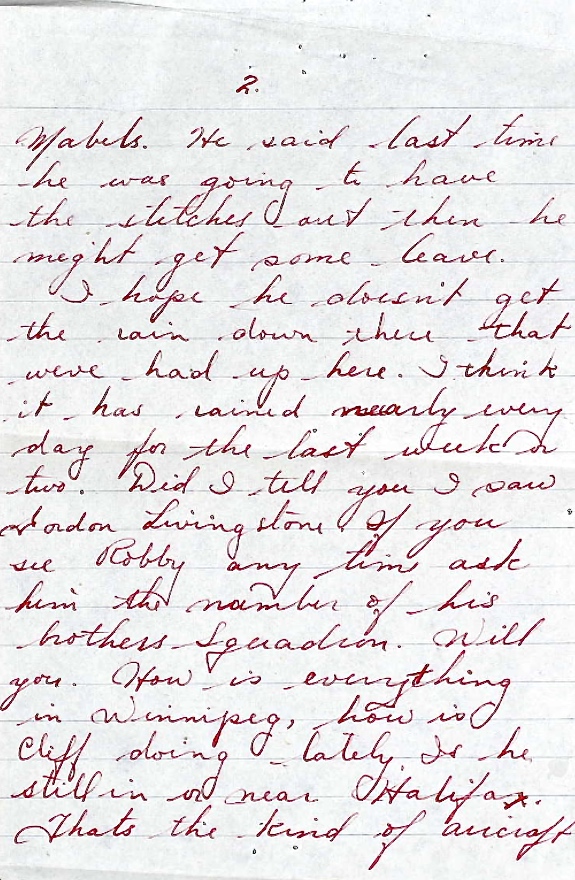 2.
Mabels. He said last time
he was going to have
the stitches out then he
might get some leave.
I hope he doesn't get
the rain down there that
weve had up here. I think
it has rained nearly every
day for the last week or
two. Did I tell you I saw
Gordon Livingstone. If you
see Robby any time ask
him the number of his
brothers Squadron. Will
you. How is everything
in Winnipeg, how is
Cliff doing lately. Is he
still in or near Halifax.
Thats the kind of aircraft